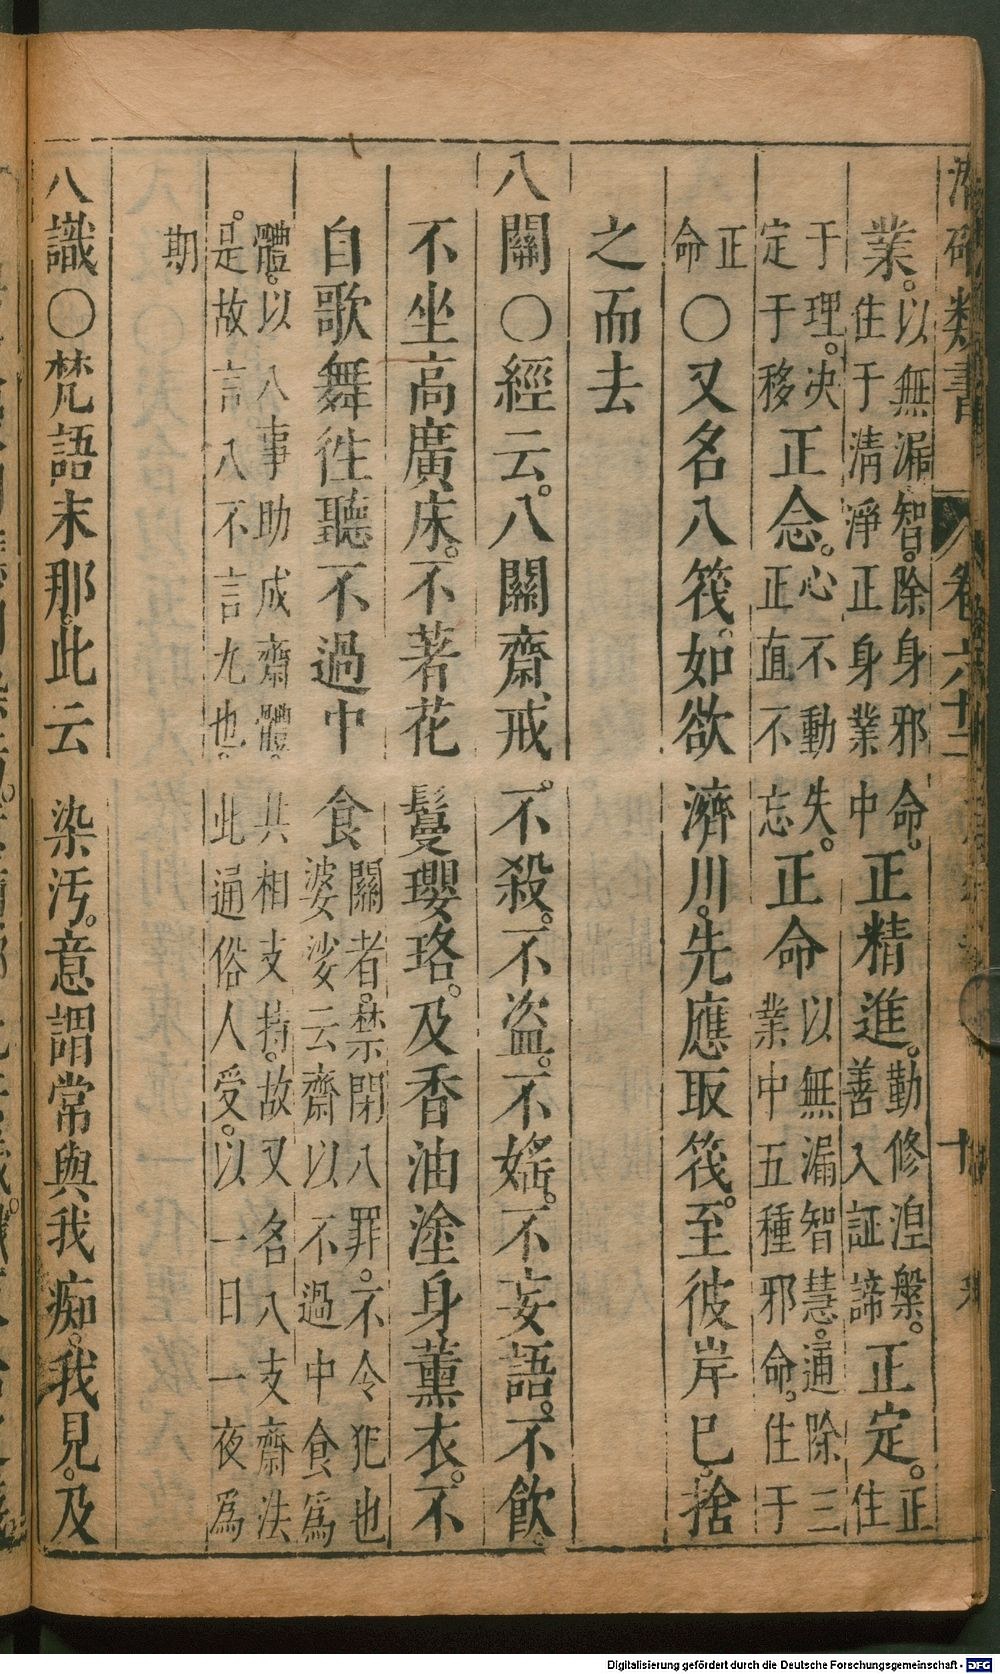 潛確類書 卷六十二 十
業。以無漏智。除身邪命。正精進。勤修湼槃。正定。正
住于清淨正身業中 善入証諦 住
于理。决正念。心不動失。正命以無漏智慧。通除三
定于移 正直不忘 業中五種邪命。住于
正命〇又名八筏。如欲濟川。先應取筏。至彼岸巳。捨
之而去
八關〇經云。八關齋戒。不殺。不盗。不婬。不妄語。不飲。
不坐高廣床。不著花鬘瓔珞。及香油塗身薰衣。不
自歌舞徃聽不過中食關者。禁閉八罪。不令犯也
婆娑云齋以不過中食爲
體。以八事助成齋體。共相支持。故又名八支齋法
。是故言八不言九也。此通俗人受。以一日一夜爲
期
八識〇梵語末那。此云染汚。意謂常與我痴。我見。及
Digitalisierung gefördert durch die Deutsche Forschungsgemeinschaft - DFG